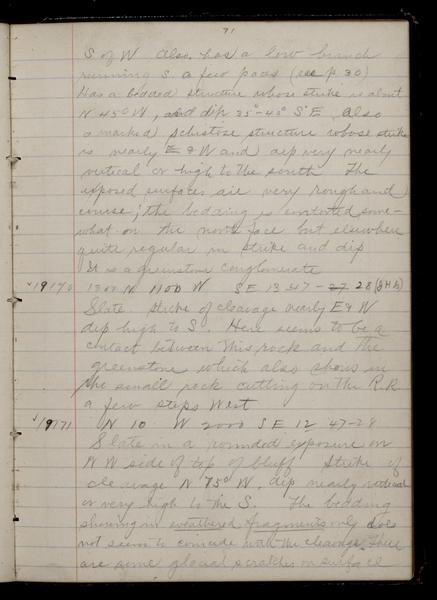 71
S of W also has a low branch
running S. a few paces (see p. 30)
Has a bedded structure whose strike is about
N 45° W, and dip 35°-40° S E Also
a marked schistose structure whose strike
is nearly E & W and dip very nearly
vertical or high to the south The
exposed surfaces are very rough and
coarse; the bedding is contorted some-
what on the north face but elsewhere
quite regular in strike and dip
It is a greenstone conglomerate
19170 1300 N 1100 W SE 13 47-27 28
Slate. Strike of cleavage nearly E & W
dip high to S. Here seems to be a
contact between this rock and the
greenstone which also shows in
the small rock cutting on the R.R
a few steps West
19171 N 10 W 2000 S E 12 47-28
Slate in a rounded exposure on
N W side of top of bluff Strike of
cleavage N 75° W. dip nearly vertical
or very high to the S. The bedding
showing in weathered fragments only does
not seem to coincide with the cleavage. There
are some glacial scratches on surface